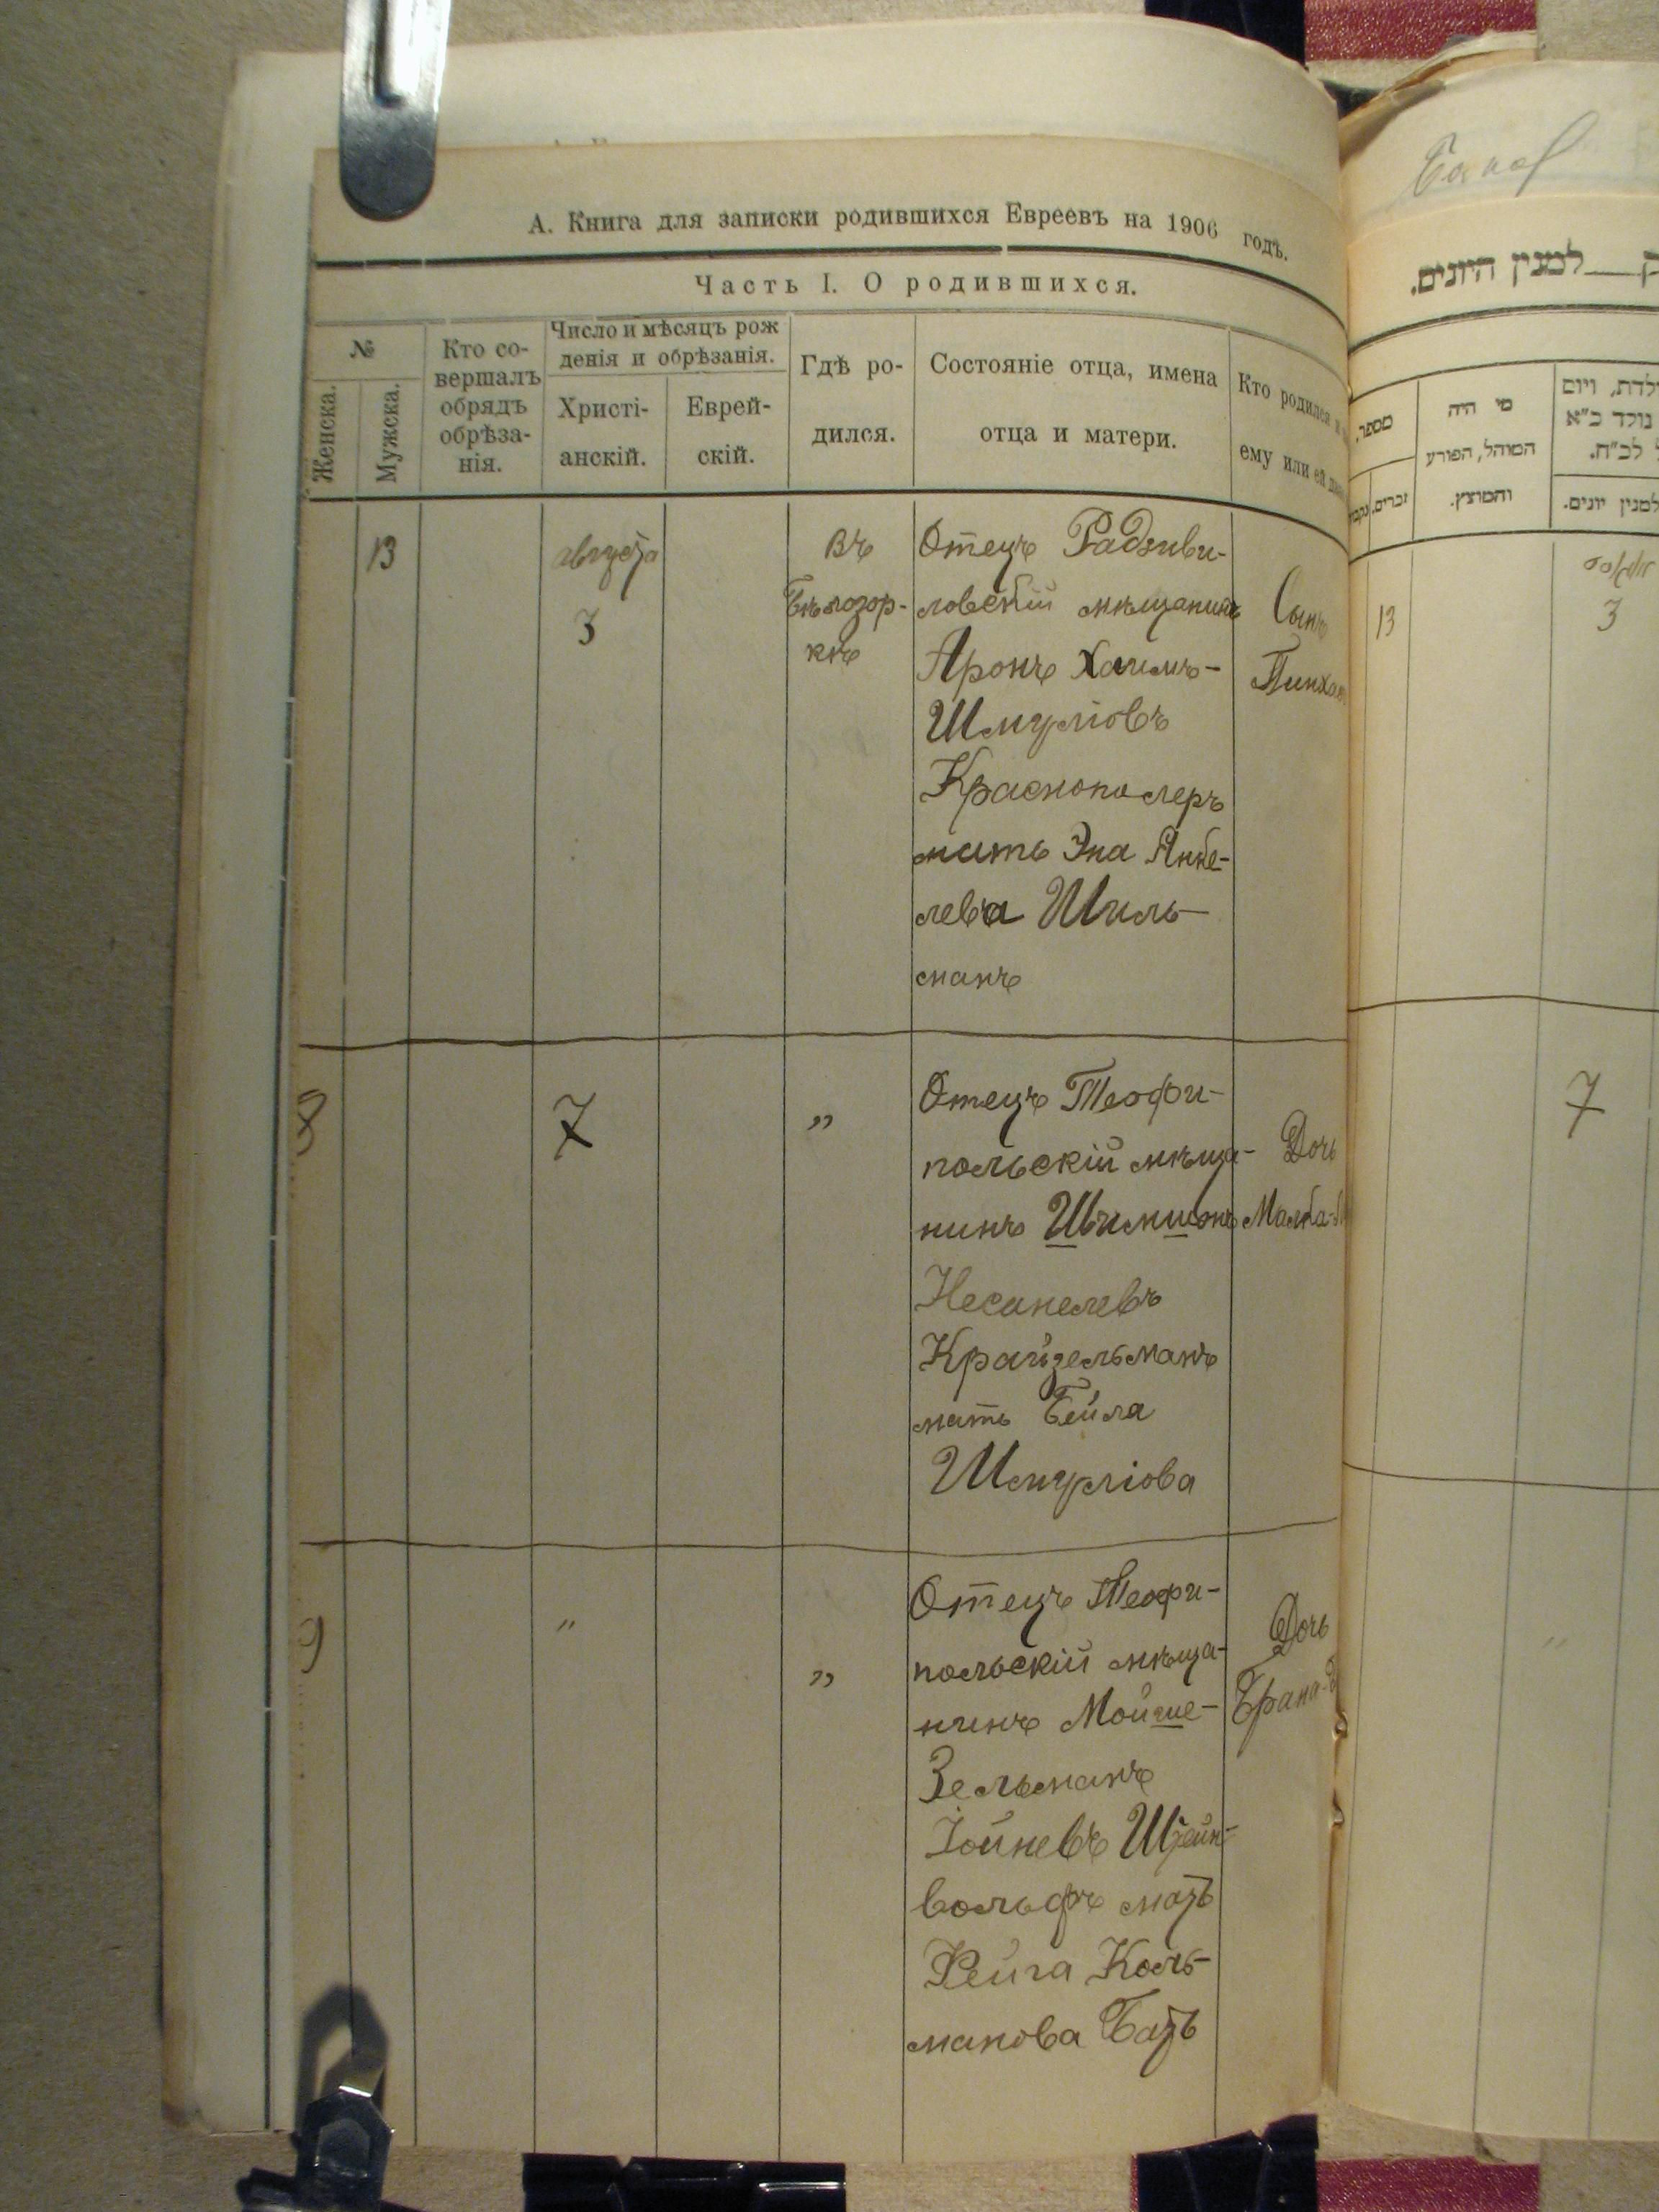 А. Книга для записки родившихся Евреевъ на 1906 годъ.
Часть I. О родившихся.
№
Женска.
Мужска.
Кто со-
вершалъ
обрядъ
обрѣза-
нія.
Число и мѣсяцъ рож
денія и обрѣзанія.
Христі-
анскій.
Еврей-
скій.
Гдѣ ро-
дился.
Состояніе отца, имена
отца и матери.
Кто родился
ему или ей
13
августа
3
Въ
Бѣлозор-
кѣ
Отецъ Радзиви-
ловскій мѣщанинъ
Аронъ Хаимъ-
Шмуліовъ
Краснополеръ
мать Эна Янке-
лева Шиль-
манъ
Сынъ
Пинхас
8
7
"
Отецъ Теофи-
польскій мѣща-
нинъ Шимшонъ
Несанелевъ
Крайзельманъ
мать Бейла
Шмуліова
Дочь
Малка-
9
"
"
Отецъ Теофи-
польскій мѣща-
нинъ Мойше-
Зельманъ
Іойневъ Штейн-
вольфъ мать
Фейга Коль-
манова Батъ
Дочь
Брана-
למנין היונים.
מספר.
זכרים.
מי היה
המוהל, הפורע
והמוצץ.
לדת, ויום
נולד כ"א
לכ"ח.
למנין יונים.
13
3
7
"